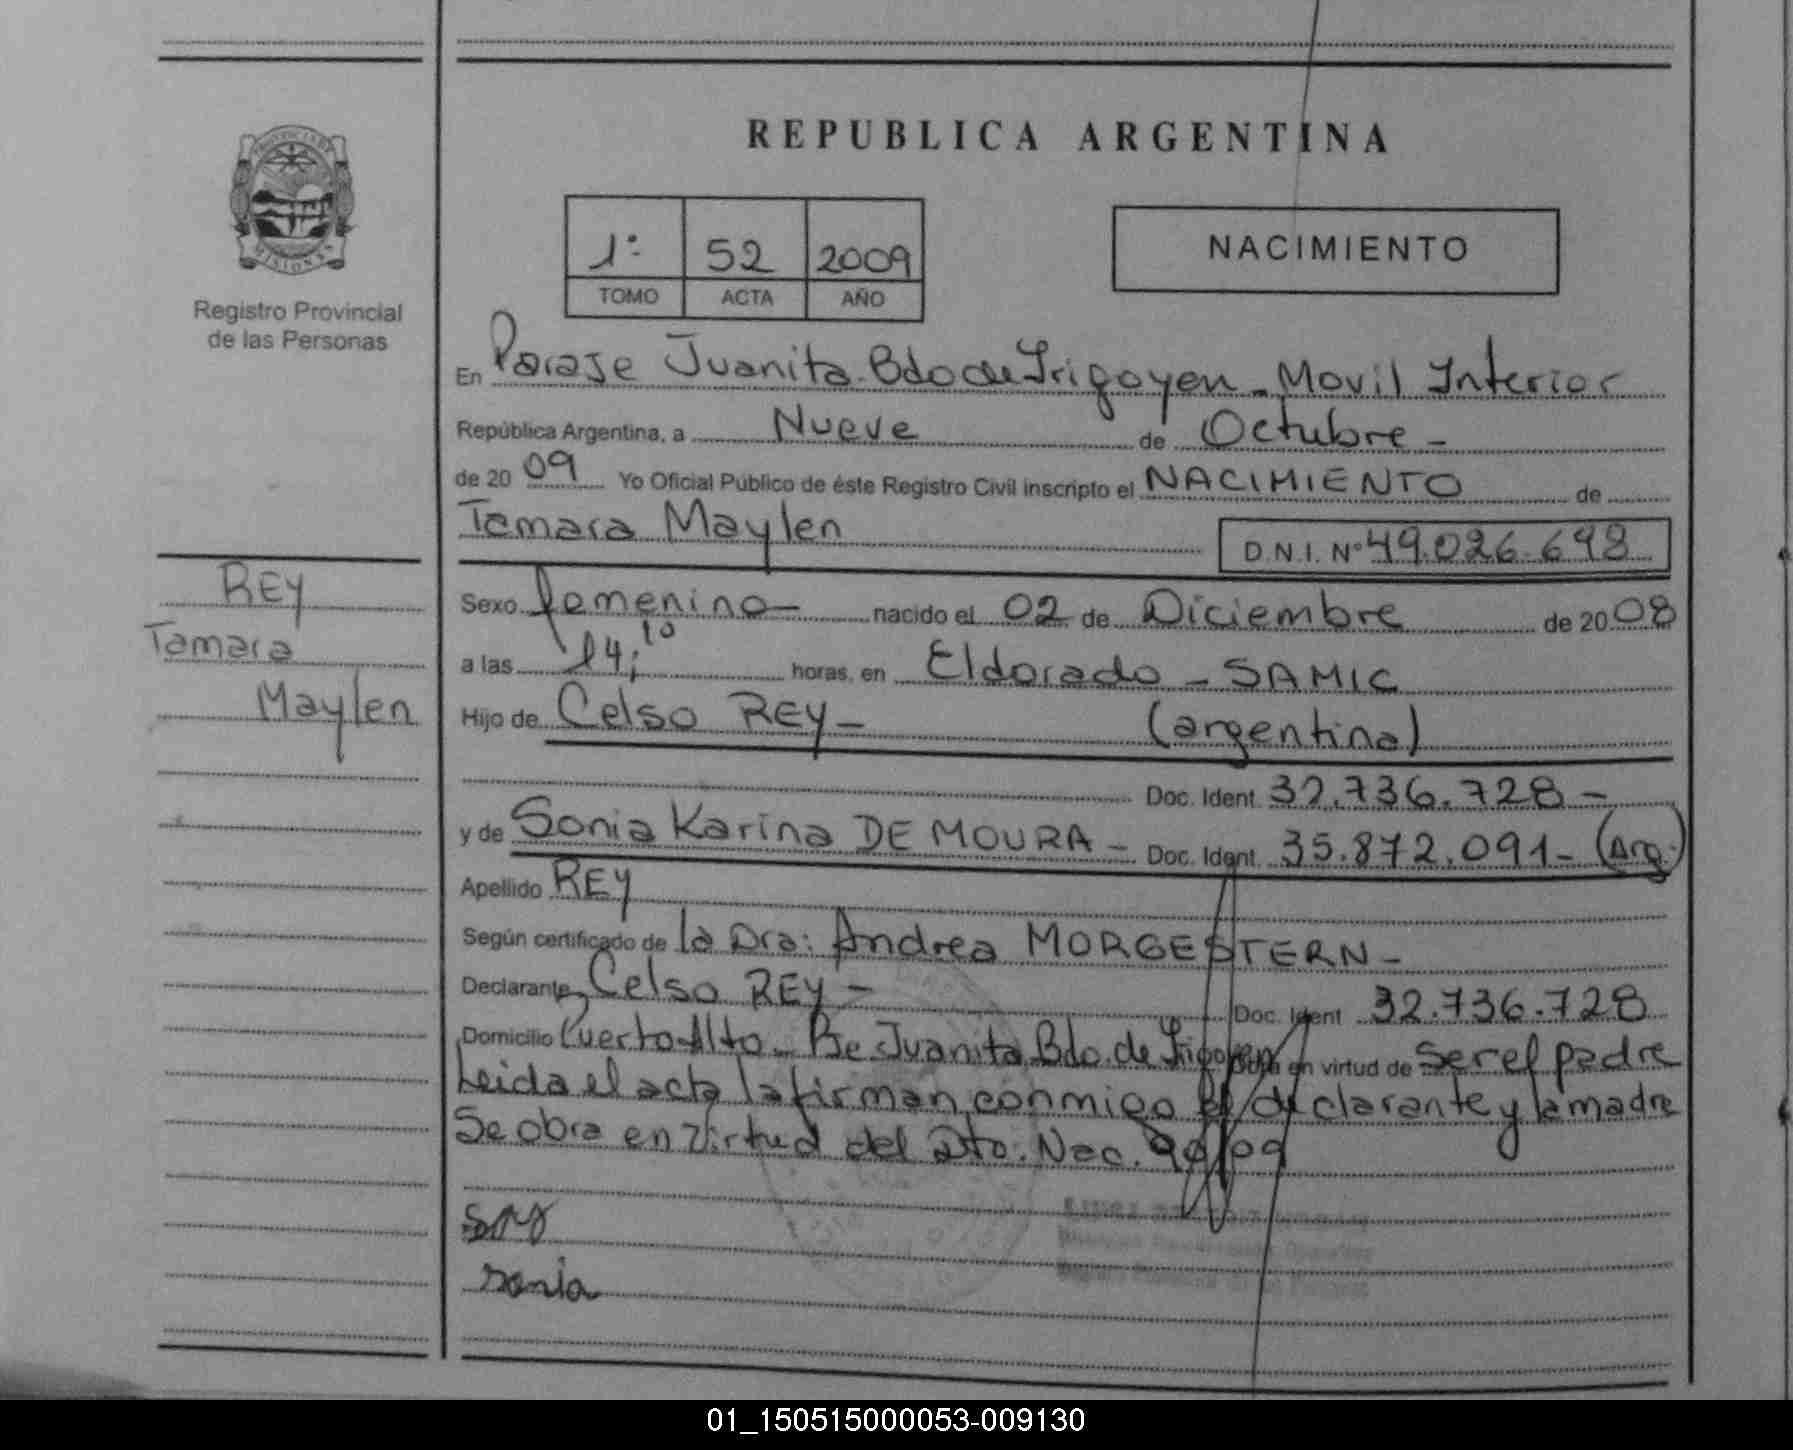 REPUBLICA ARGENTINA
1º 52 2009
TOMO ACTA AÑO
NACIMIENTO
Registro Provincial
de las Personas
En Paraje Juanita. Bdo de Irigoyen - Movil Interior
República Argentina, a Nueve de Octubre -
de 20 09 Yo Oficial Público de éste Registro Civil inscripto el NACIMIENTO de
Tamara Maylen D.N.I. Nº 49.026.698
REY
Tamara
Maylen
Sexo femenino - nacido el 02 de Diciembre de 20 08
a las 14,10 horas, en Eldorado - SAMIC
Hijo de Celso REY - (argentina)
Doc. Ident. 32.736.728 -
y de Sonia Karina DE MOURA - Doc. Ident. 35.872.091 - (Arg.)
Apellido REY
Según certificado de la Dra: Andrea MORGESTERN -
Declarante Celso REY - Doc. Ident 32.736.728
Domicilio Puerto Alto - Be Juanita Bdo. de Irigoyen en virtud de ser el padre
Leida el acta la firman conmigo el declarante y la madre
Se obra en virtud del Dto. Nac. 90/09
sonia
01_150515000053-009130